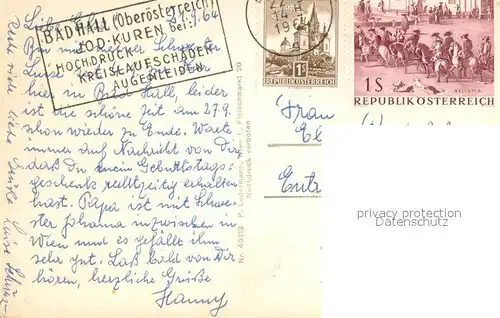 BAD HALL (Oberösterreich)
JOD-KUREN bei:
HOCHDRUCK
KREISLAUFSCHÄDEN
AUGENLEIDEN
1964
1S
REPUBLIK ÖSTERREICH
1S
REPUBLIK ÖSTERREICH
Liebe
Bin mit meiner Schwester
Luise
hier in Bad Hall, leider
ist die schöne Zeit am 27.9
schon wieder zu Ende. Warte
immer auf Nachricht von Dir
daß Du mein Geburtstags-
geschenk rechtzeitig erhalten
hast. Papa ist mit Schwe-
ster Johanna inzwischen in
Wien und es gefällt ihm
sehr gut. Laß bald von Dir
hören, herzliche Grüße
Hanny
Recht viele liebe Grüße Luise
Nachdruck verboten
Frau
privacy protection
Datenschutz